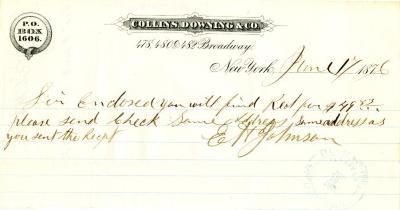 P.O.
BOX
1606.
COLLINS, DOWNING & CO.
478, 480 & 482 Broadway.
New York, June 17 1876
Sir Enclosed you will find Rect for $49
please send Check Same Address Same address as
you sent the Recpt
E H Johnson